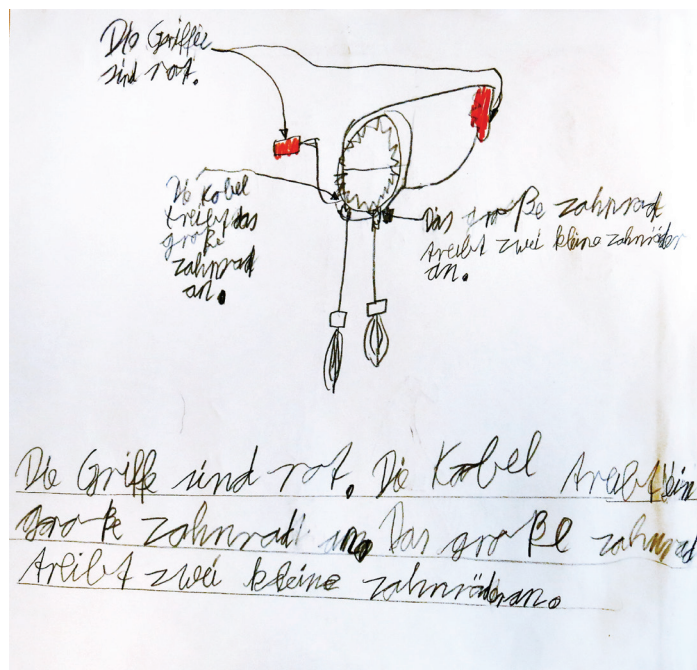 Die Griffe
sind rot.
Die Kobel
treibt das
große
zahnrad
an.
Das große zahnrad
treibt zwei kleine zahnräder
an.
Die Griffe sind rot. Die Kobel treibt ein
große zahnrad an. Das große zahnrad
treibt zwei kleine zahnräder an.